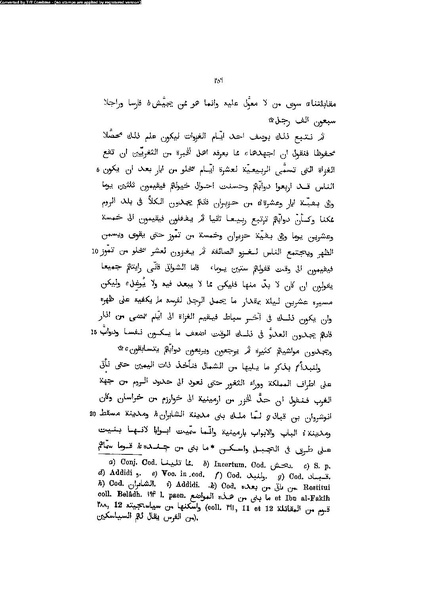 Converted by Tiff Combine - (no stamps are applied by registered version)
٢٥٩
سوى من لا معوّل عليه وانما هو ممن فارسا وراجلا
سبعون الف رجل
ثم نتبع ذلك بوصف احد ايّام الغزوات ليكون علم ذلك محصّلا
محفوظا فنقول ان اجهدها مما يعرفه اهل الخبرة من الثغريّين ان تقع
الغزاة التى تسمّى الربيعيّة لعشرة ايّام تخلو من ايار بعد ان يكون
الناس قد اربعوا دوابّهم وحسنت احوال خيولهم فيقيمون ثلثين يوما
وهى بقيّة ايار وعشرة من حزيران فانهم يجدون الكلأ فى بلد الروم
ممكنا وكأنّ دوابّهم ترتبع ربيعا ثانيا ثم يقفلون فيقيمون الى خمسة
وعشرين يوما وهى بقيّة حزيران وخمسة من تمّوز حتى يقوى ويسمن
الظهر ويجتمع الناس لغزو الصائفة ثم يغزون لعشر تخلو من تمّوز 10
فيقيمون الى وقت قفولهم ستين يوما، فاما الشواتى فانّى رايتهم جميعا
يقولون ان كان لا بدّ منها فليكن مما لا يبعد فيه ولا يُوغل وليكن
مسيره عشرين ليلة بمقدار ما يحمل الرجل لفرسه ما يكفيه على ظهره
وان يكون ذلك فى آخر فيقيم الغزاة الى ايّام تمضى من اذار
فانهم يجدون العدوّ فى ذلك الوقت اضعف ما يكون نفسا ودوابّ 15
ويجدون مواشيهم كثيرة ثم يرجعون ويربعون دوابّهم يتسابقون
ولنبدأ بذكر ما يليها من الشمال فنأخذ ذات اليمين حتى نأتى
على اطراف المملكة ووراء الثغور حتى نعود الى حدود الروم من جهة
الغرب فنقول ان حدّ الخزر من ارمينية الى خوارزم من خراسان وكان
انوشروان بن قباد لمّا ملك بنى مدينة الشابران ومدينة مسقط 20
ومدينة الباب والابواب بارمينية وانّما سمّيت ابوابا لانها بنيت
على طرق فى الجبل واسكن ما بنى من قوما سمّاهم
a) Conj. Cod. b) Incertum. Cod. c) S. p.
d) Addidi و. e) Voc. in cod. f) Cod. g) Cod.
h) Cod. الشابران. i) Addidi. k) Cod. Restitui
coll. Belâdh. l. paen. ما بنى من هذه المواضع et Ibn al-Fakîh
٢٨٨, 12 (coll. ٢٩١, 11 et 12
من الفرس يقال لهم السياسكين).